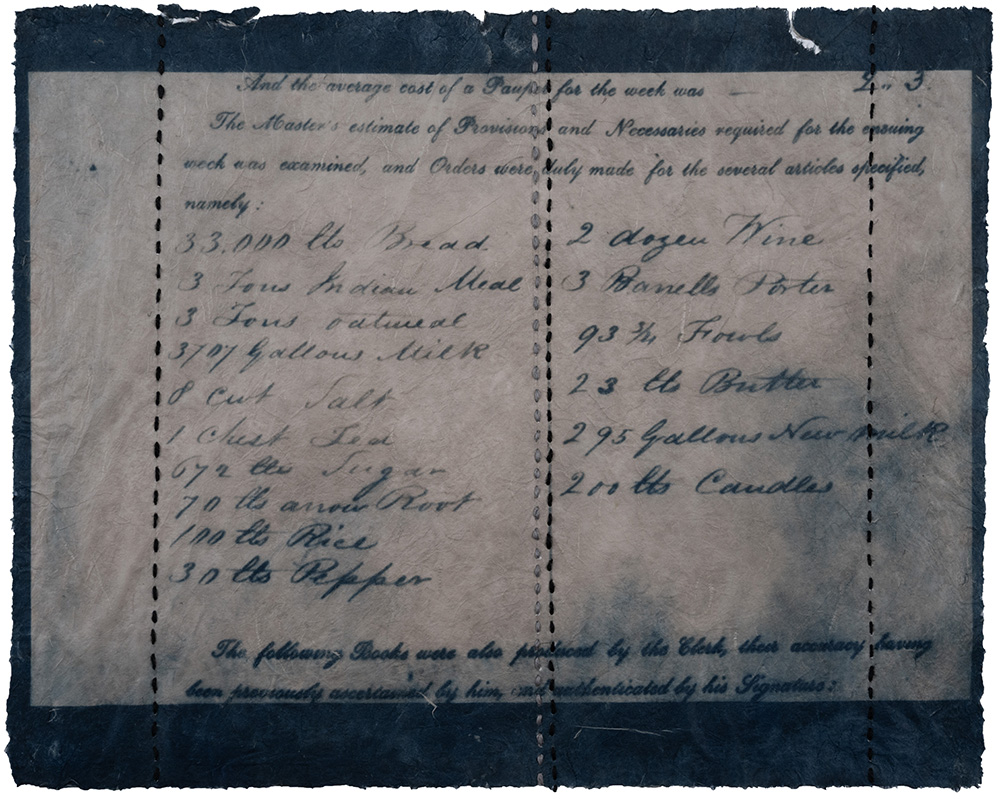 And the average cost of a Pauper for the week was — 2 „ 3.
The Master's estimate of Provisions and Necessaries required for the ensuing
week was examined, and Orders were duly made for the several articles specified,
namely:
33,000 lbs Bread
3 Tons Indian Meal
3 Tons oatmeal
3707 Gallons Milk
8 Cwt Salt
1 Chest Tea
672 lbs Sugar
70 lbs arrow Root
100 lbs Rice
30 lbs Pepper
2 dozen Wine
3 Barrells Porter
93 3/4 Fowls
23 lbs Butter
295 Gallons New milk
200 lbs Candles
The following Books were also produced by the Clerk, their accuracy having
been previously ascertained by him, and authenticated by his Signature: